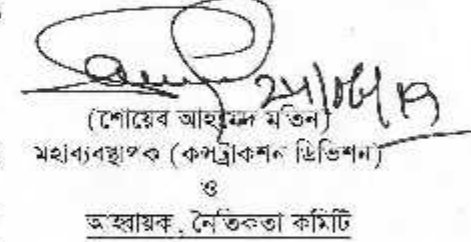 ২৭/০৬/১৯
(শোয়েব আহমেদ মতিন)
মহাব্যবস্থাপক (কন্সট্রাকশন ডিভিশন)
ও
আহবায়ক, নৈতিকতা কমিটি